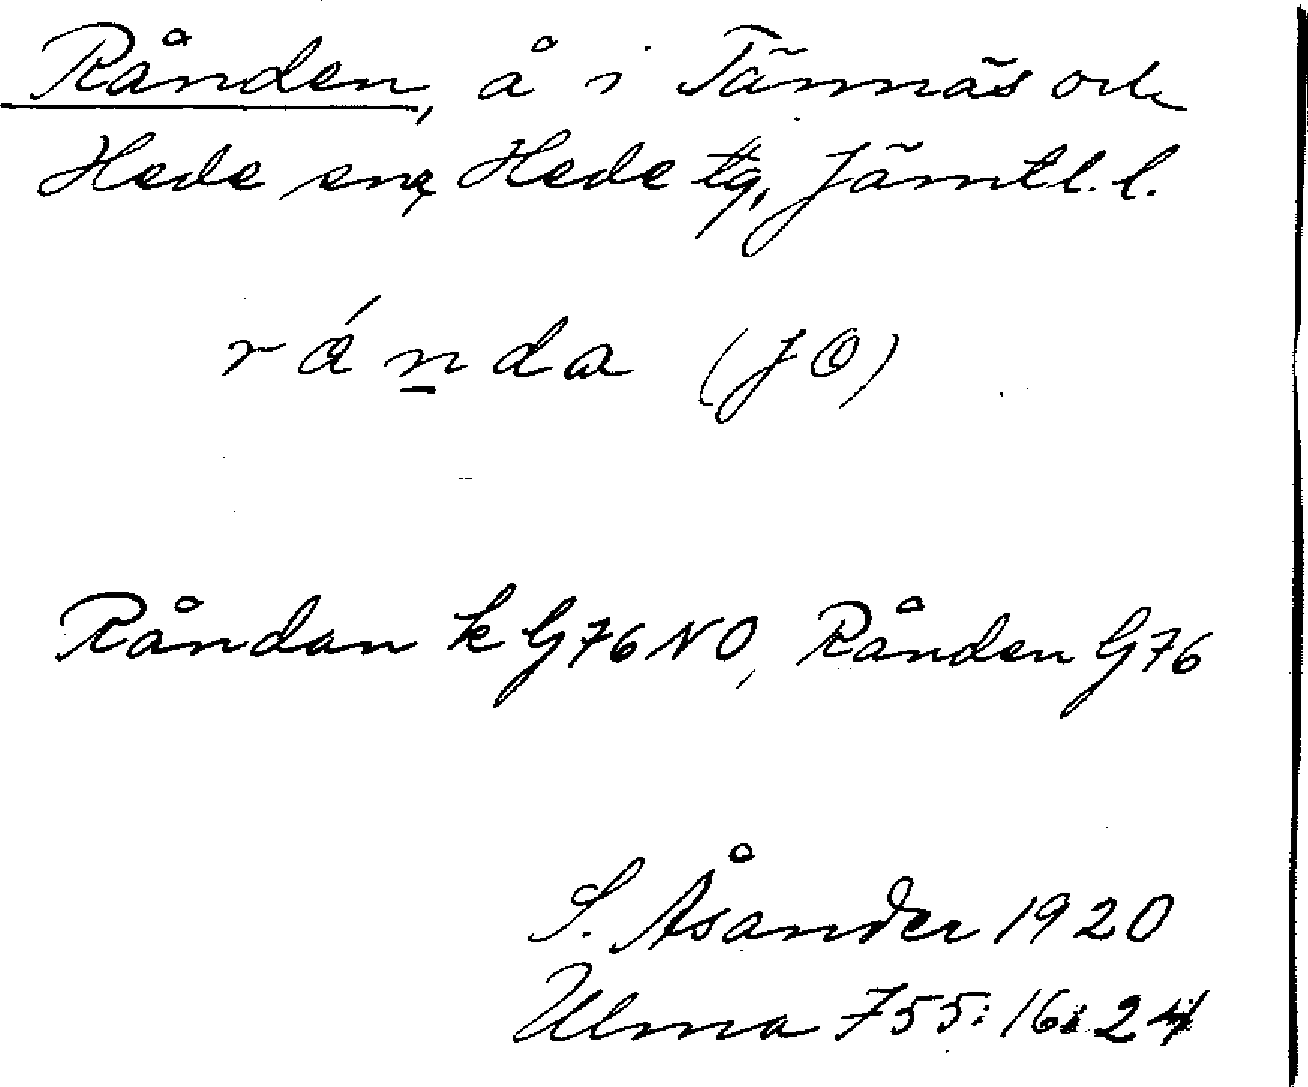 Rånden, å i Tännäs och
Hede snr, Hede tg, Jämtl. l.
ránda (JÖ)
Råndan k G76 NO, Rånden G76
S. Åsander 1920
Ulma 755:16:24